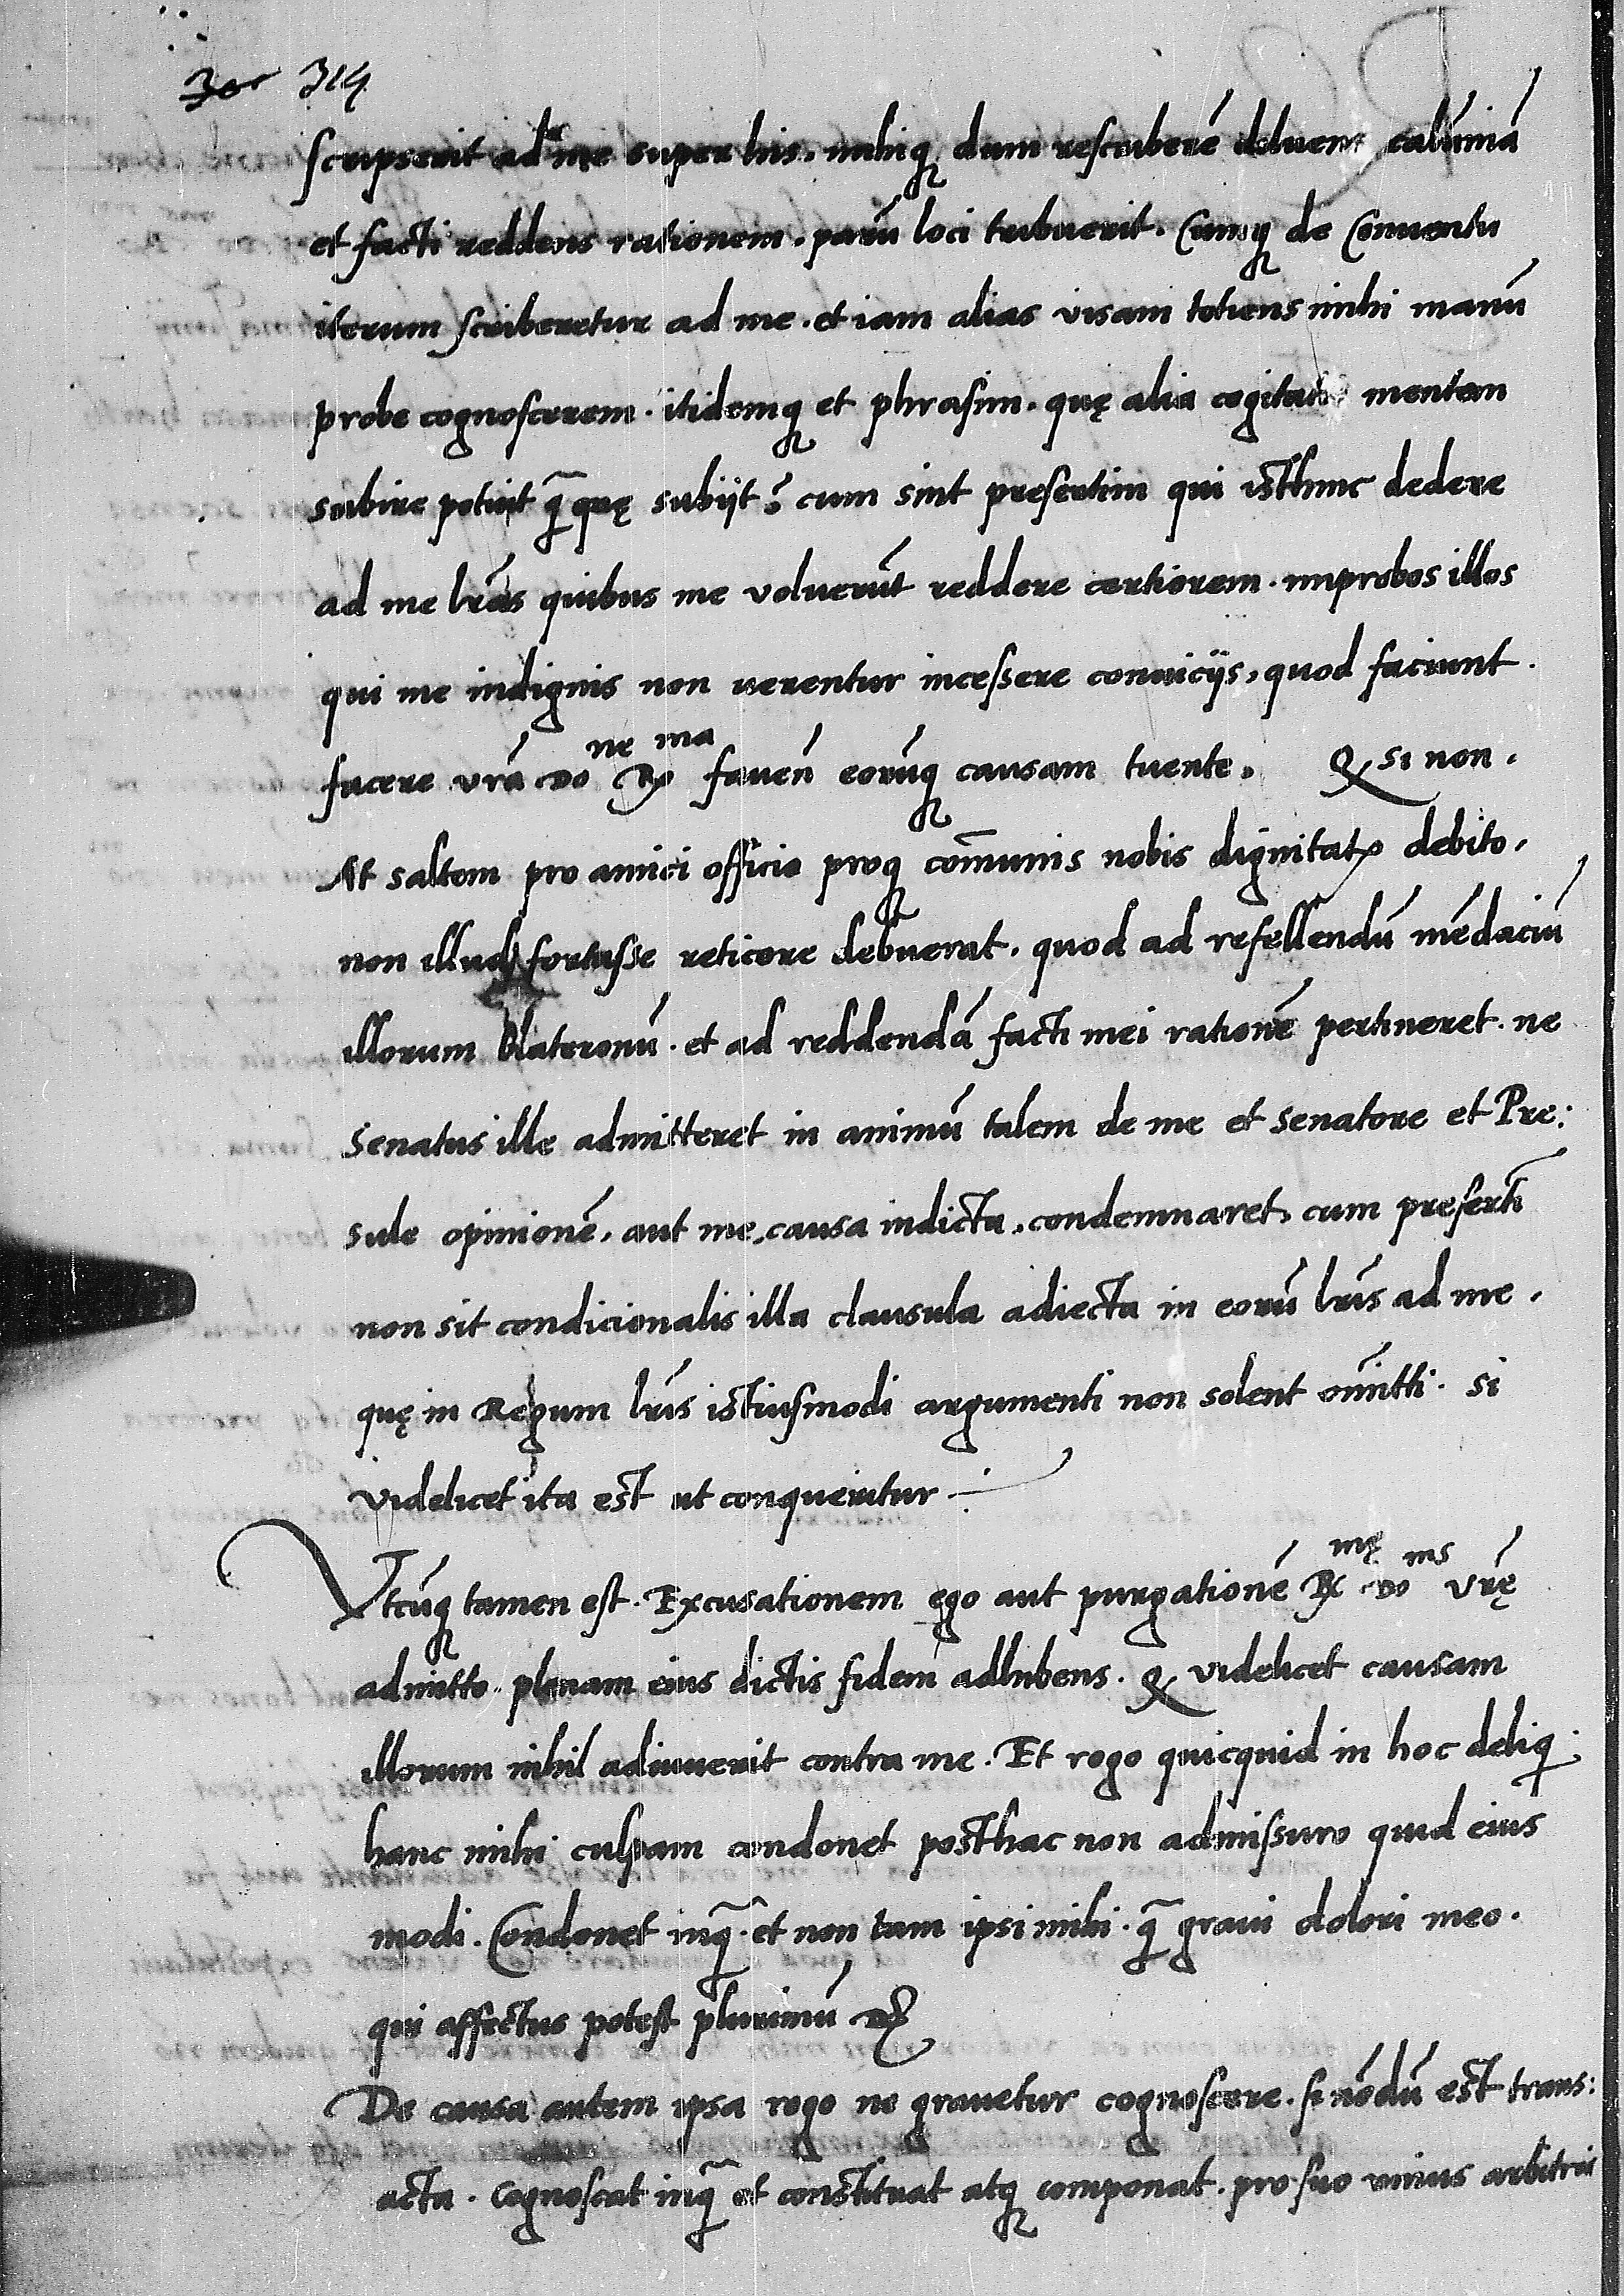 314
scripserit ad me super his. mihiq₃ dum rescriberē diluens calūniā
et facti reddens rationem. parū loci tribuerit. Cumq₃ de Conventu
iterum scriberetur ad me. et iam alias visam totiens mihi manū
probe cognoscerem. itidemq₃ et phrasim. quę alia cogitatio mentem
subire potuit q̃ quę subijt? cum sint presertim qui isthinc dedere
ad me lr̃as quibus me voluerūt reddere certiorem. improbos illos
qui me indignis non verentur incessere convicijs, quod faciunt.
facere vr̃a Do^ne R^ma faveñ eorūq₃ causam tuente. Q si non.
At saltem pro amici officio proq₃ cōmunis nobis dignitatꝭ debito.
non illud fortasse reticere debuerat. quod ad refellendū mēdaciū
illorum blateronū. et ad reddendā facti mei rationē pertineret. ne
Senatus ille admitteret in animū talem de me et Senatore et Pre:
sule opinionē, aut me, causa indicta, condemnaret, cum preserti
non sit condicionalis illa clausula adiecta in eorū lr̃is ad me.
quę in Regum lr̃is istiusmodi argumenti non solent omitti. si
videlicet ita est ut conqueritur
Vtcūq₃ tamen est. Excusationem ego aut purgationē R^mę Do^nis vr̃ę
admitto. plenam eius dictis fidem adhibens. Q videlicet causam
illorum nihil adiuverit contra me. Et rogo quicquid in hoc deliqi
hanc mihi culpam condonet posthac non admissuro quid eius
modi. Condonet inq̃. et non tam ipsi mihi. q̃ gravi dolori meo.
qui affectus potest plurimū &
De causa autem ipsa rogo ne gravetur cognoscere. si nōdū est trans:
acta. Cognoscat inq̃ et constituat atq₃ componat. pro suo unius arbitrio